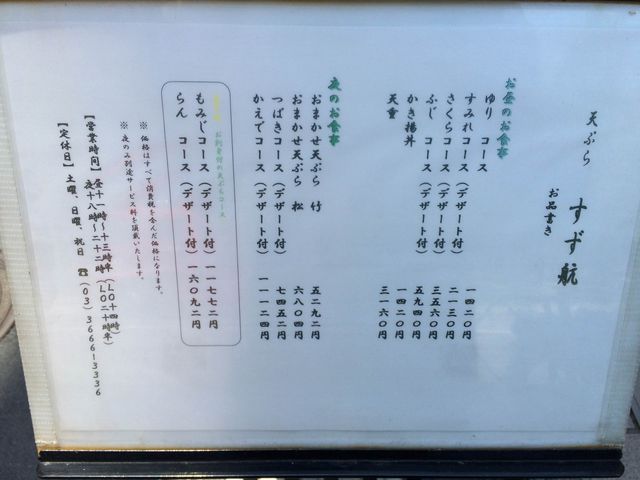 天ぷら すず航
お品書き
お昼のお食事
ゆり コース 一四二〇円
すみれコース(デザート付) 二一三〇円
さくらコース(デザート付) 三五六〇円
ふじ コース(デザート付) 五九四〇円
かき揚丼 一四二〇円
天重 三一六〇円
夜のお食事
おまかせ天ぷら 竹 五二九二円
おまかせ天ぷら 松 六八〇四円
つばきコース(デザート付) 七四五二円
かえでコース(デザート付) 一一一二四円
お刺身付の天ぷらコース
もみじコース(デザート付) 一一七七二円
らん コース(デザート付) 一六〇九二円
※ 価格はすべて消費税を含んだ価格になります。
※ 夜のみ別途サービス料を頂戴いたします。
【営業時間】昼十一時～十三時半(LO十四時)
夜十八時～二十二時(LO二十時半)
【定休日】土曜、日曜、祝日 ☎(03)3666-3336